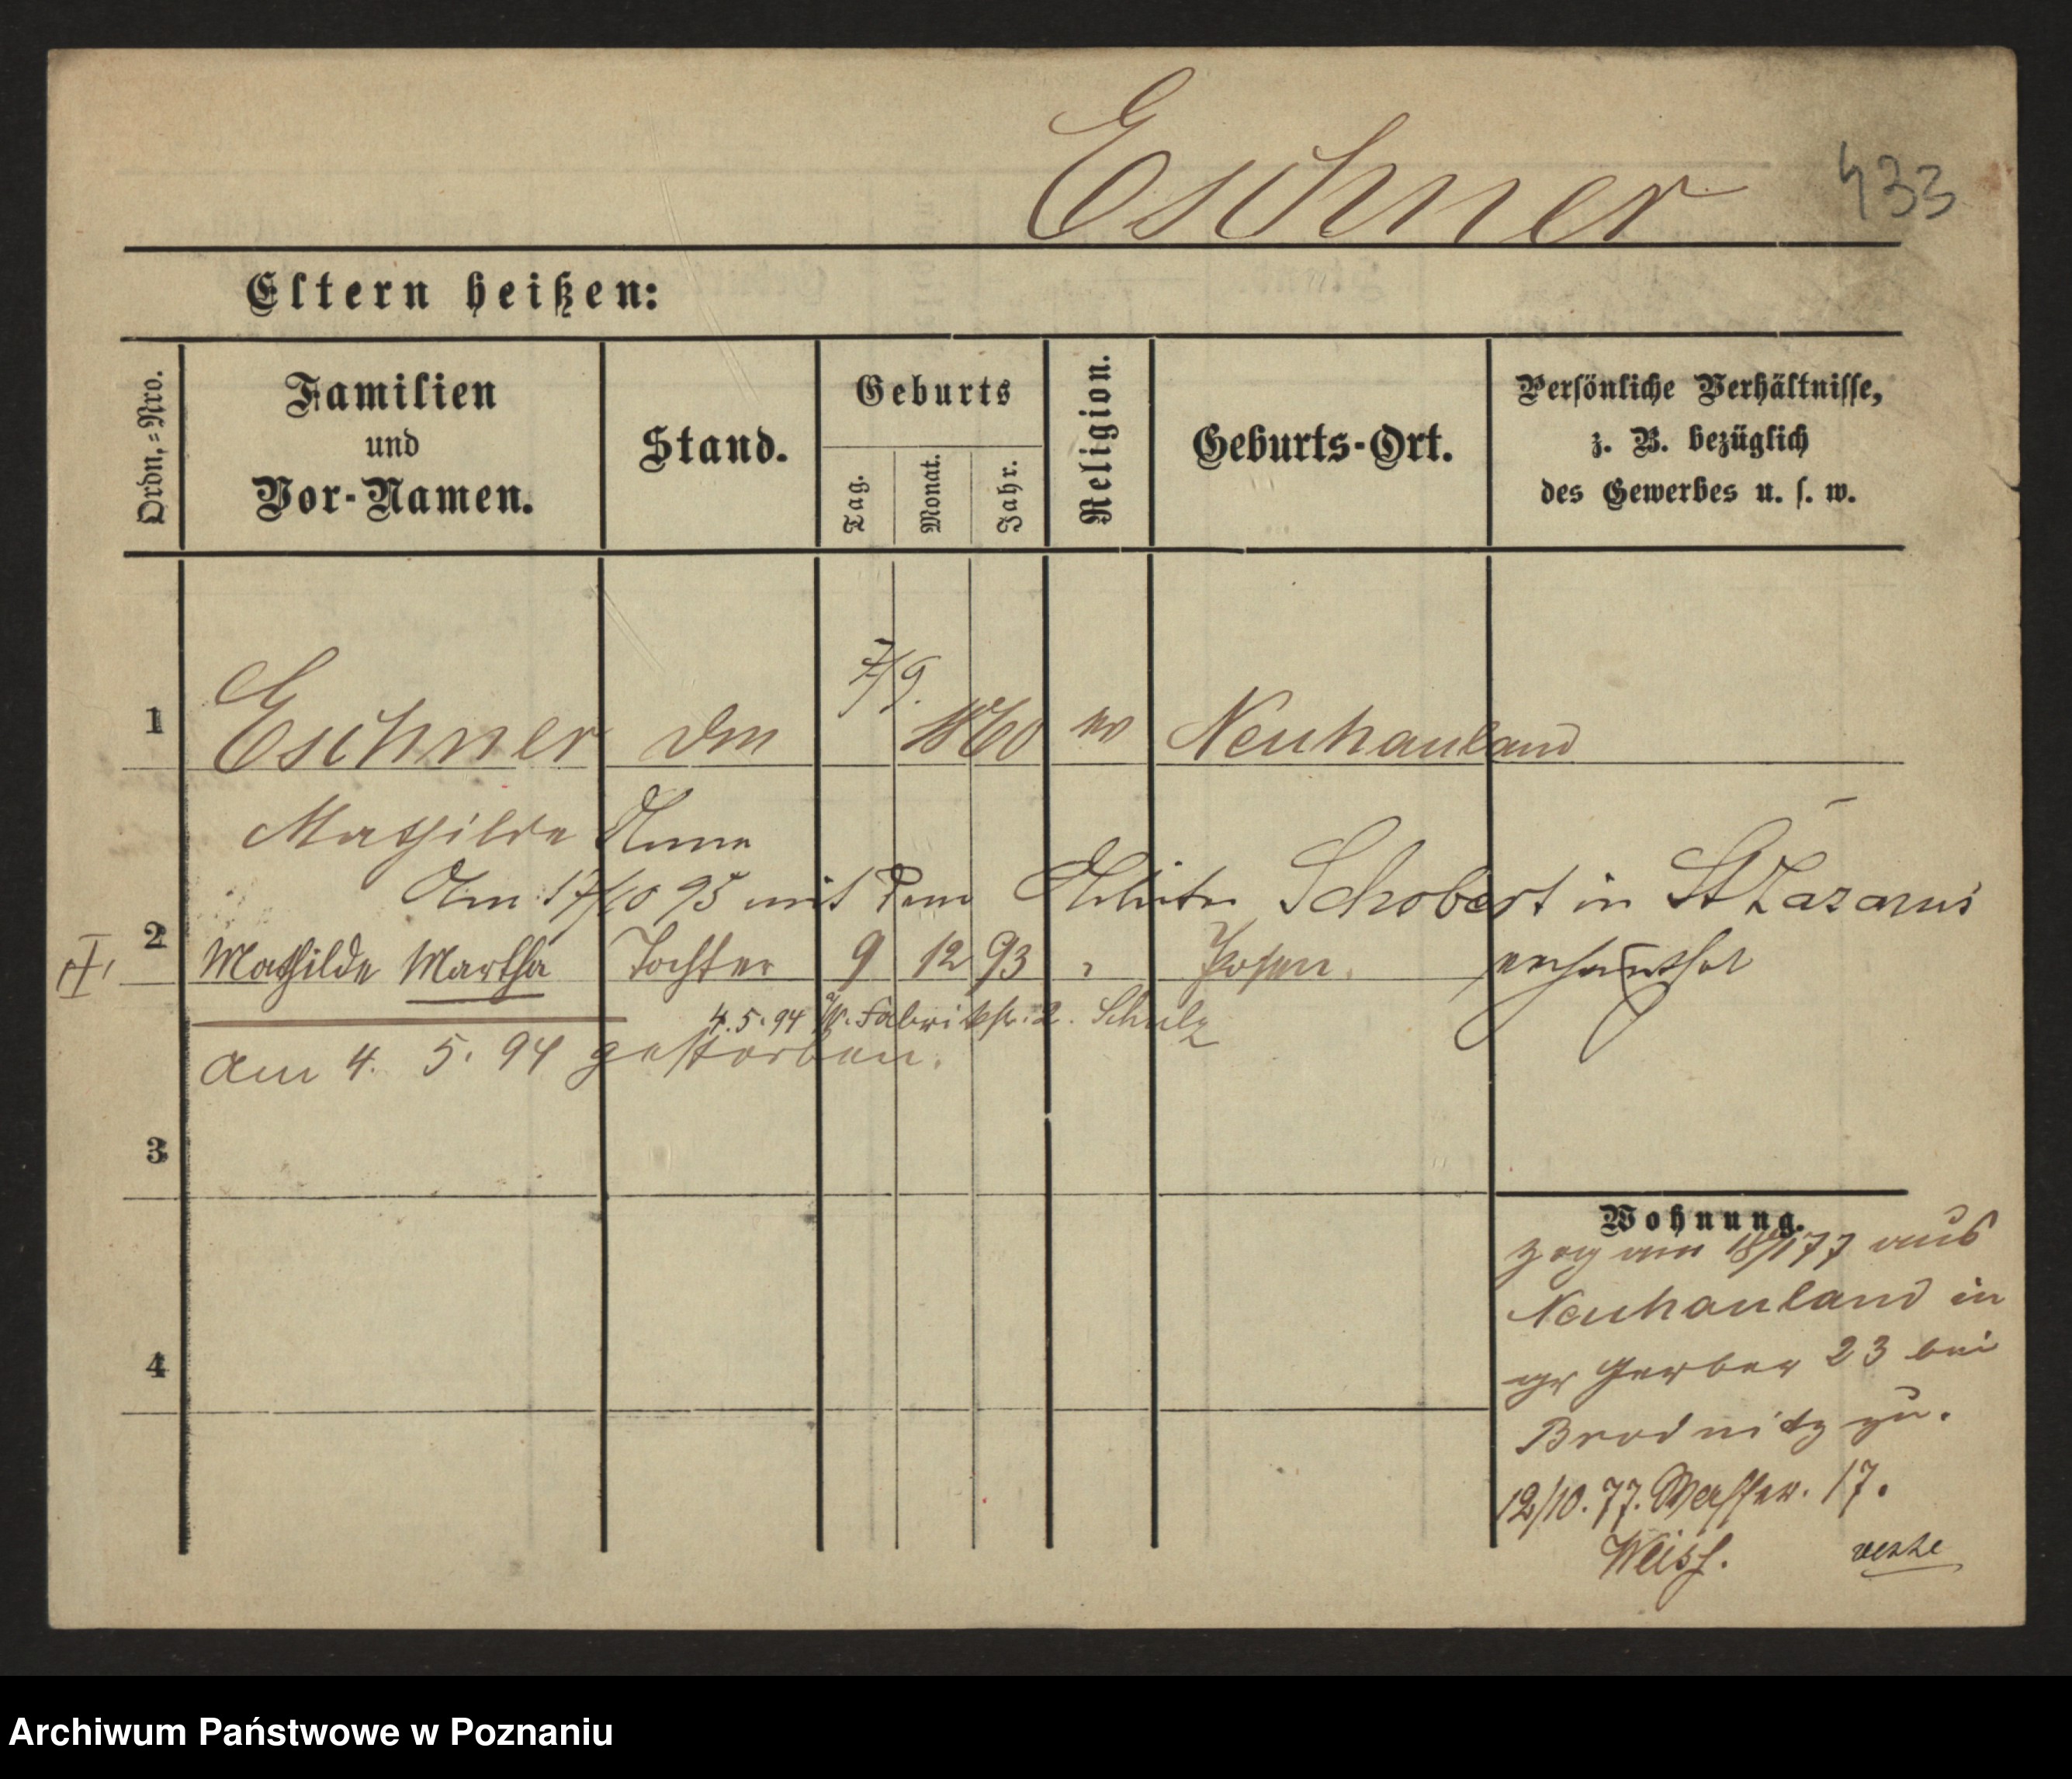 Eschner
433
Eltern heißen:
Ordn.=Nro.
Familien
und
Vor-Namen.
Stand.
Geburts
Tag.
Monat.
Jahr.
Religion.
Geburts-Ort.
Persönliche Verhältnisse,
z. B. bezüglich
des Gewerbes u. s. w.
1 Eschner 7/9. 1860 ev Neuhauland
Mathilde Anna
Am 17/10 95 mit dem Arbeiter Schobert in St Lazarus
2 Mathilde Martha Tochter 9 12 93 " Posen. verheirathet
4.5.94 Fabrikstr. 2. Schulz
am 4. 5. 94 gestorben.
3
4
Wohnung.
zog am 18/1 77 aus
Neuhauland in
gr Gerber 23 bei
Brodnitz zu.
12/10. 77. Wasser. 17.
Weiss. verte
Archiwum Państwowe w Poznaniu